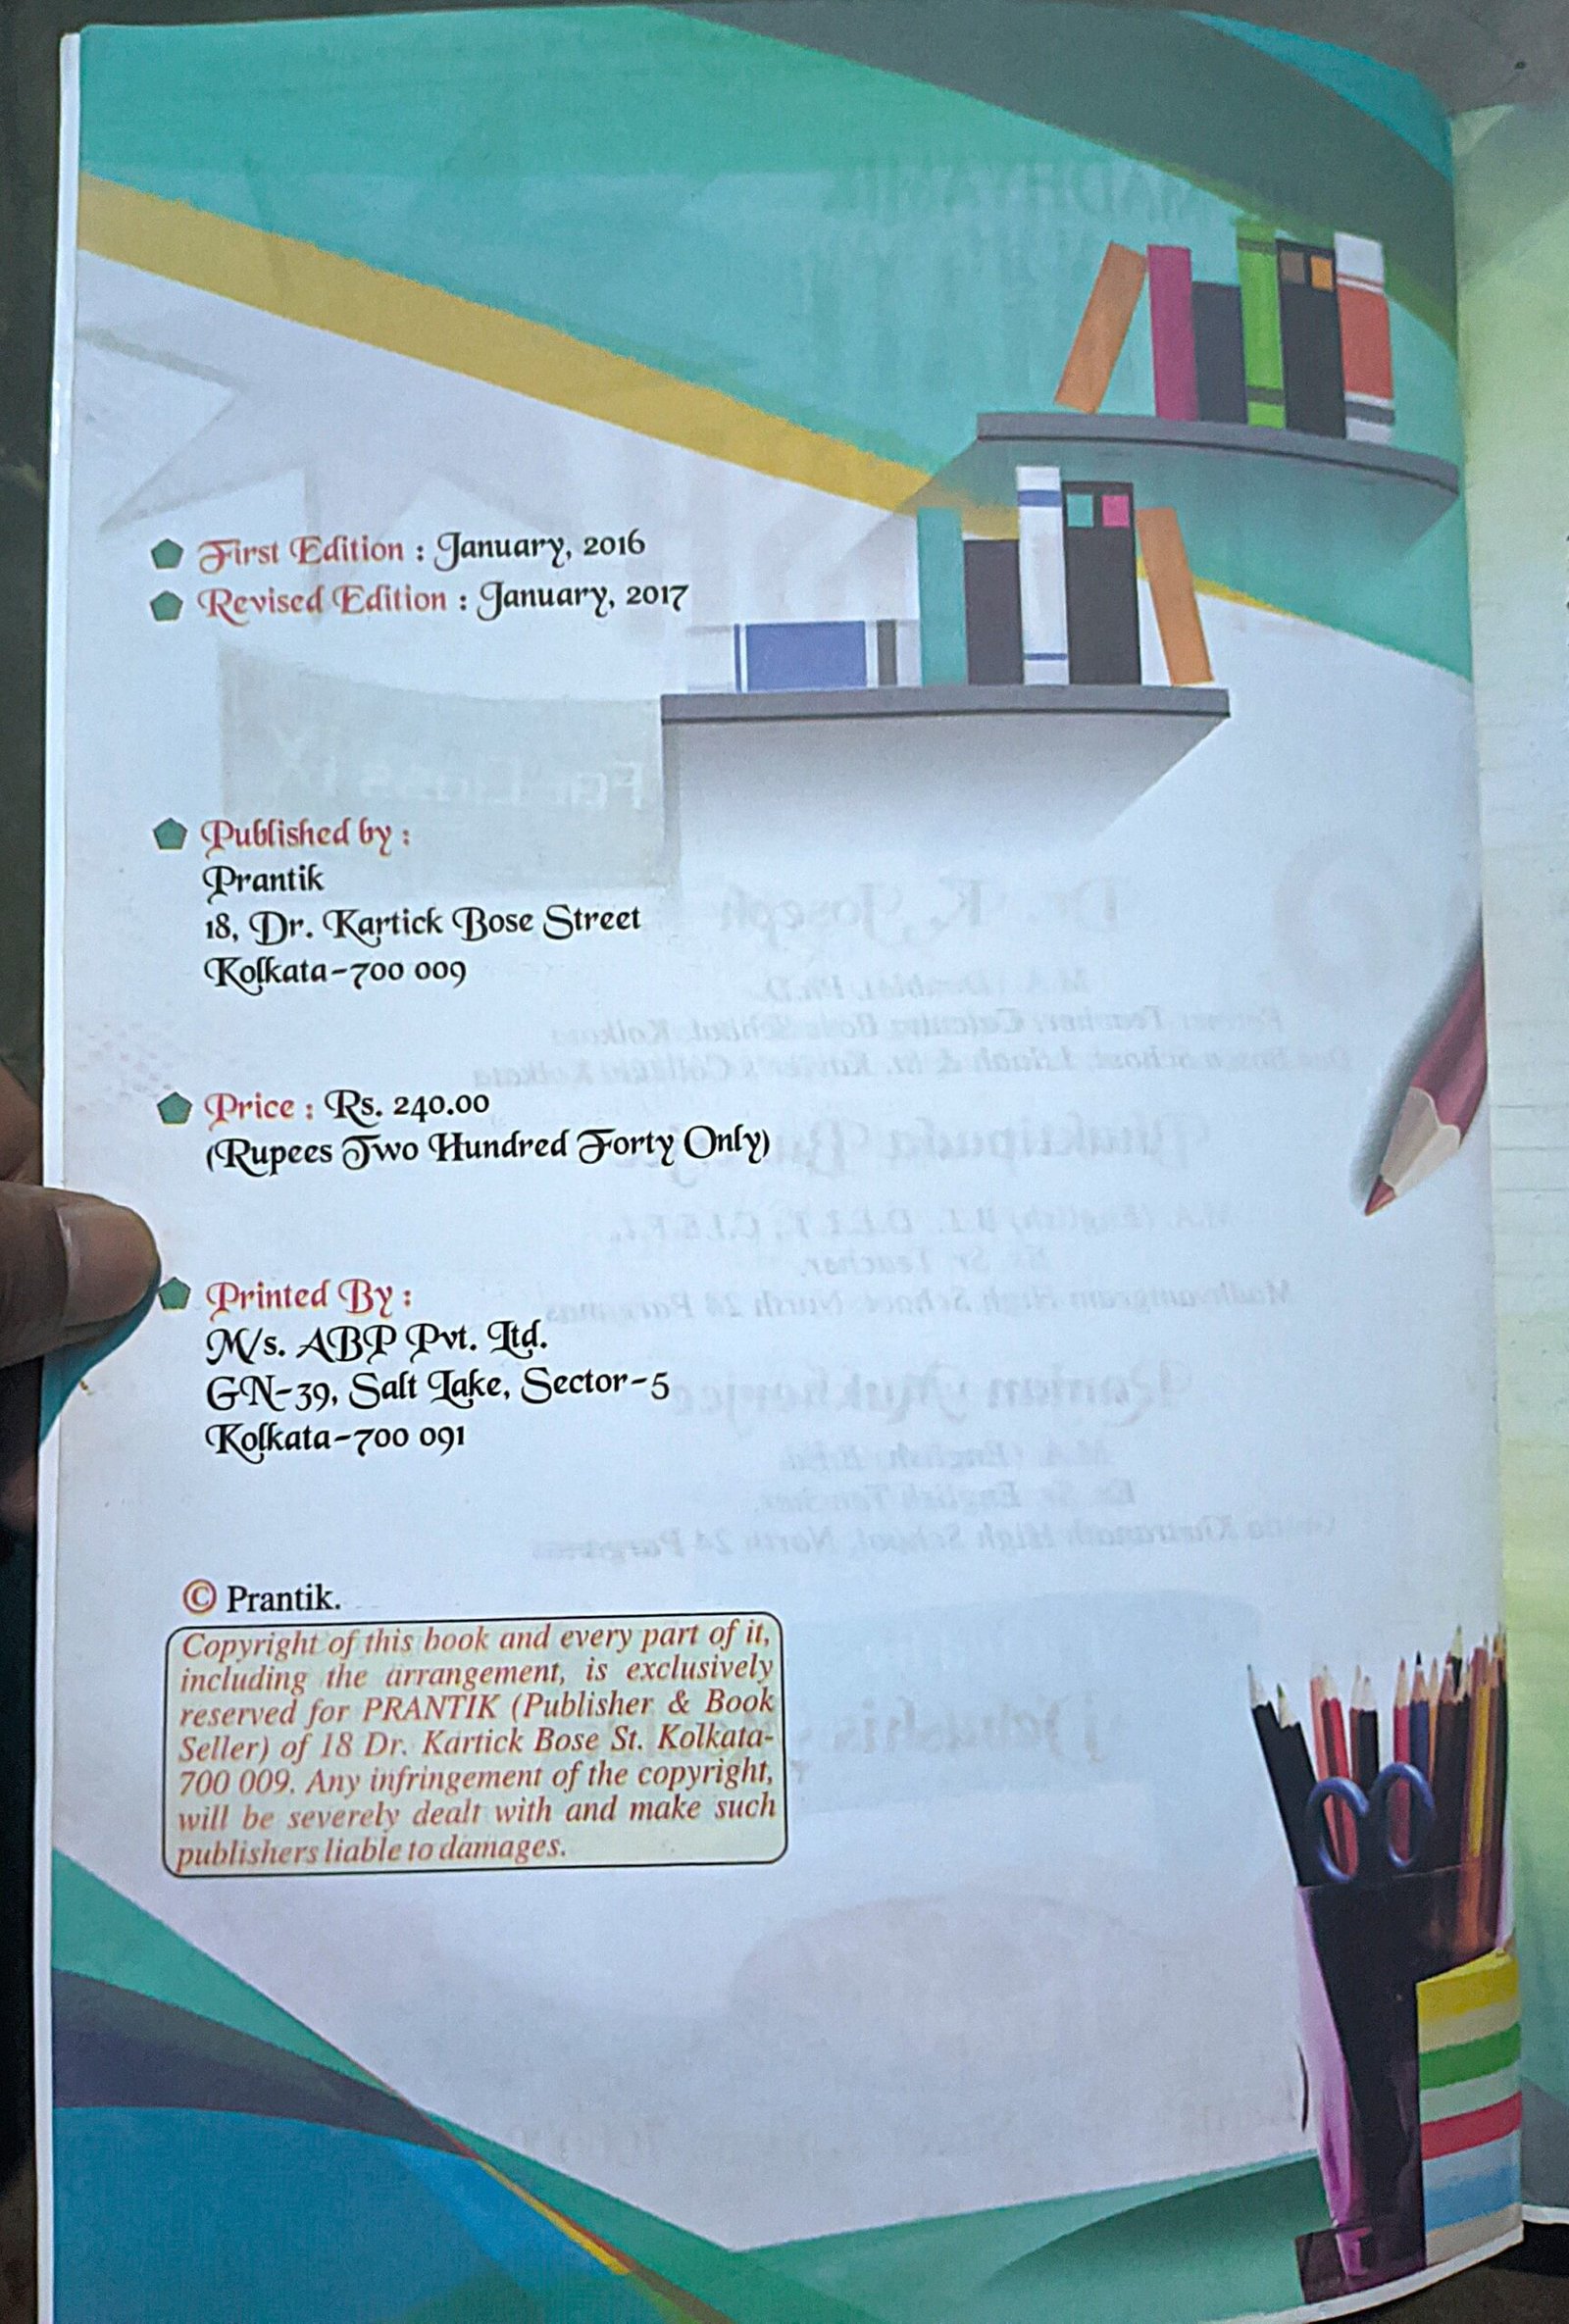 First Edition : January, 2016
Revised Edition : January, 2017
Published by :
Prantik
18, Dr. Kartick Bose Street
Kolkata-700 009
Price : Rs. 240.00
(Rupees Two Hundred Forty Only)
Printed By :
M/s. ABP Pvt. Ltd.
GN-39, Salt Lake, Sector-5
Kolkata-700 091
© Prantik.
Copyright of this book and every part of it,
including the arrangement, is exclusively
reserved for PRANTIK (Publisher & Book
Seller) of 18 Dr. Kartick Bose St. Kolkata-
700 009. Any infringement of the copyright,
will be severely dealt with and make such
publishers liable to damages.